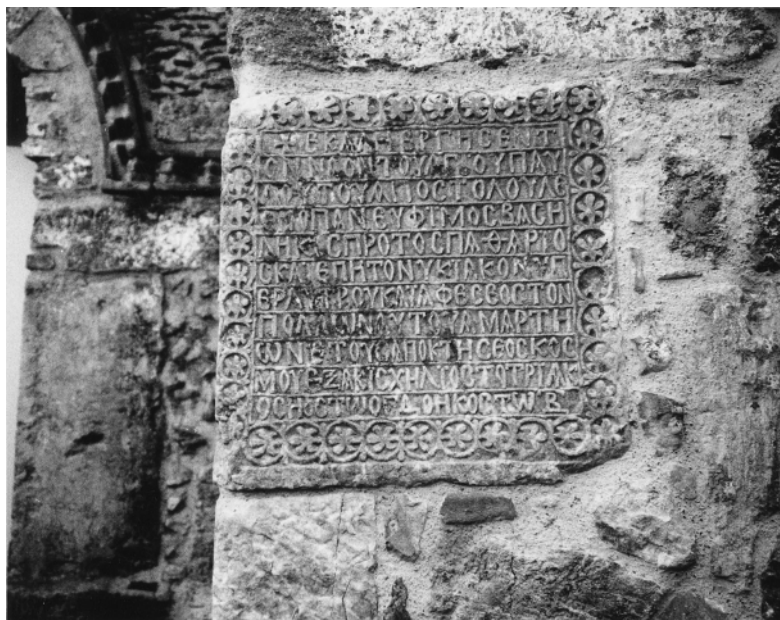 + ΕΚΑΛΗΕΡΓΗСΕΝΤ
ΟΝΝΑΟΝΤΟΥΑΓΙΟΥΠΑΥ
ΛΟΥΤΟΥΑΠΟСΤΟΛΟΥΛΕ
ΟΝΟΠΑΝΕΥΦΙΜΟСΒΑСΗ
ΛΗΚΟСΠΡΟΤΟСΠΑΘΑΡΙΟ
СΚΑΙΕΠΗΤΟΝΥΚΙΑΚΟΝΥΠ
ΕΡΛΥΤΡΟΥΚΑΙΑΦΕСΕΟСΤΟΝ
ΠΟΛΛΩΝΑΥΤΟΥΑΜΑΡΤΗ
ΩΝΕΤΟΥСΑΠΟΚΤΗСΕΟСΚΟС
ΜΟΥΕΖΑΚΙСΧΗΛΙΟСΤΟΤΡΙΑΚ
ΟСΗΟСΤΩΟΓΔΟΗΚΟСΤΩΒ